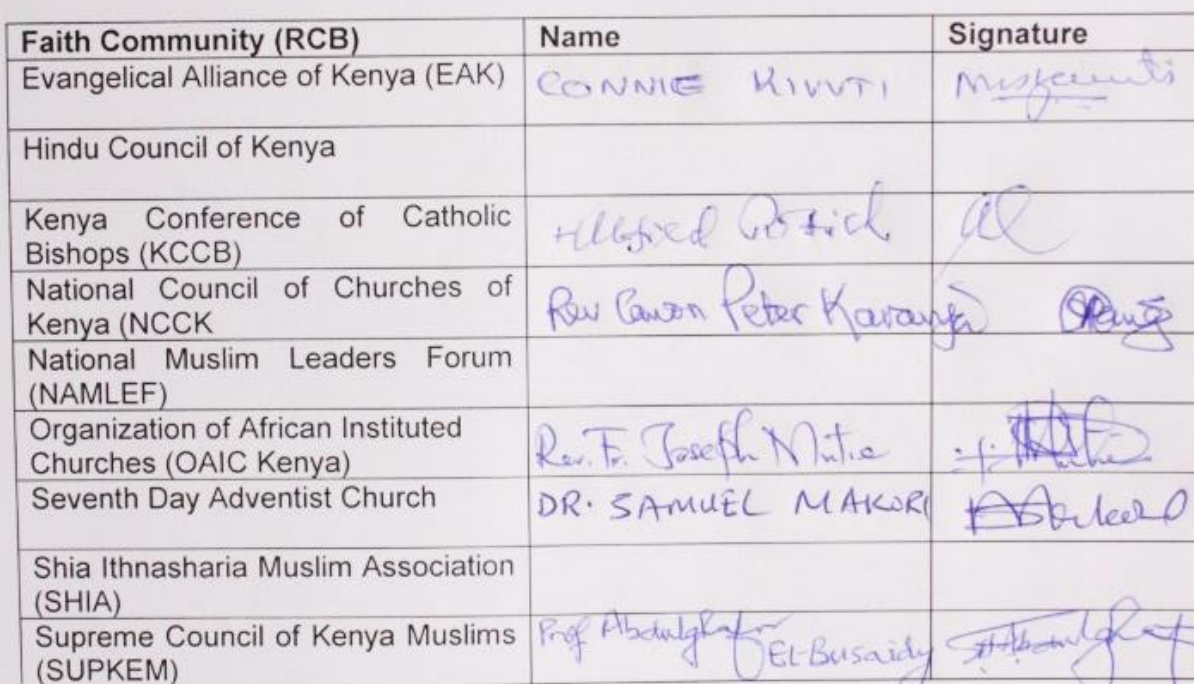 Faith Community (RCB) Name Signature
Evangelical Alliance of Kenya (EAK) CONNIE KIVUTI
Hindu Council of Kenya
Kenya Conference of Catholic
Bishops (KCCB) Alfred Rotich
National Council of Churches of
Kenya (NCCK Rev Canon Peter Karanja
National Muslim Leaders Forum
(NAMLEF)
Organization of African Instituted
Churches (OAIC Kenya) Rev. Fr. Joseph Mutie
Seventh Day Adventist Church DR. SAMUEL MAKORI
Shia Ithnasharia Muslim Association
(SHIA)
Supreme Council of Kenya Muslims Prof Abdulghafur
(SUPKEM) El-Busaidy